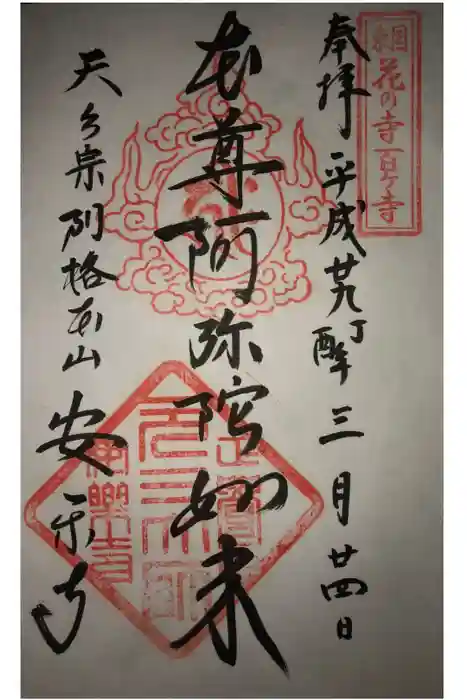 東国花の寺百ヶ寺
奉拝 平成廿九丁酉年三月廿四日
本尊阿弥陀如来
天台宗別格本山 安楽寺
元三大師
安樂寺